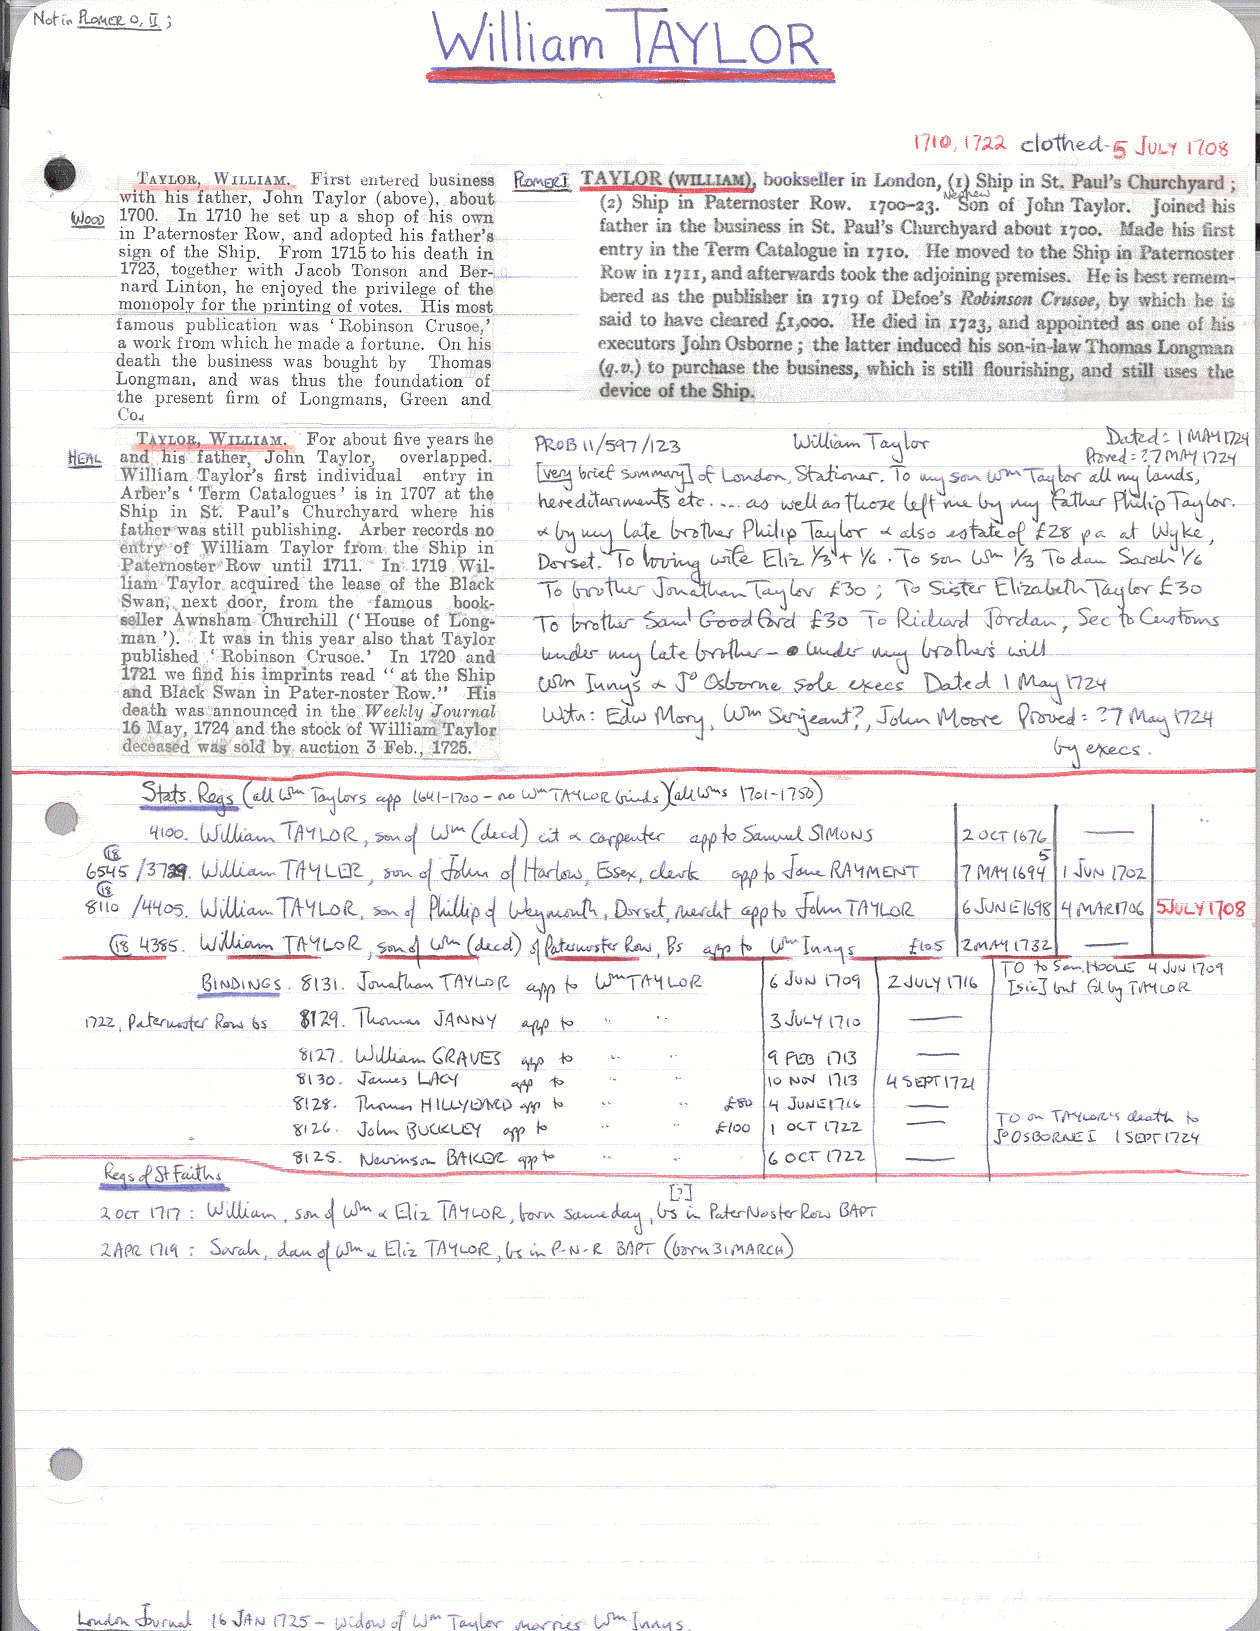 Not in PLOMER O, II ;
William TAYLOR
1710, 1722 clothed - 5 JULY 1708
WOOD
TAYLOR, WILLIAM. First entered business
with his father, John Taylor (above), about
1700. In 1710 he set up a shop of his own
in Paternoster Row, and adopted his father's
sign of the Ship. From 1715 to his death in
1723, together with Jacob Tonson and Ber-
nard Linton, he enjoyed the privilege of the
monopoly for the printing of votes. His most
famous publication was ' Robinson Crusoe,'
a work from which he made a fortune. On his
death the business was bought by Thomas
Longman, and was thus the foundation of
the present firm of Longmans, Green and
Co.
PLOMER I TAYLOR (WILLIAM), bookseller in London, (1) Ship in St. Paul's Churchyard ;
(2) Ship in Paternoster Row. 1700-23. Nephew Son of John Taylor. Joined his
father in the business in St. Paul's Churchyard about 1700. Made his first
entry in the Term Catalogue in 1710. He moved to the Ship in Paternoster
Row in 1711, and afterwards took the adjoining premises. He is best remem-
bered as the publisher in 1719 of Defoe's Robinson Crusoe, by which he is
said to have cleared £1,000. He died in 1723, and appointed as one of his
executors John Osborne ; the latter induced his son-in-law Thomas Longman
(q.v.) to purchase the business, which is still flourishing, and still uses the
device of the Ship.
HEAL
TAYLOR, WILLIAM. For about five years he
and his father, John Taylor, overlapped.
William Taylor's first individual entry in
Arber's ' Term Catalogues ' is in 1707 at the
Ship in St. Paul's Churchyard where his
father was still publishing. Arber records no
entry of William Taylor from the Ship in
Paternoster Row until 1711. In 1719 Wil-
liam Taylor acquired the lease of the Black
Swan, next door, from the famous book-
seller Awnsham Churchill (' House of Long-
man '). It was in this year also that Taylor
published ' Robinson Crusoe.' In 1720 and
1721 we find his imprints read " at the Ship
and Black Swan in Pater-noster Row." His
death was announced in the Weekly Journal
16 May, 1724 and the stock of William Taylor
deceased was sold by auction 3 Feb., 1725.
PROB 11/597/123 William Taylor Dated: 1 MAY 1724
Proved = ?7 MAY 1724
[very brief summary] of London, Stationer. To my son Wm Taylor all my lands,
hereditaments etc .... as well as those left me by my father Philip Taylor.
& by my late brother Philip Taylor & also estate of £28 pa at Wyke,
Dorset. To loving wife Eliz 1/3 + 1/6. To son Wm 1/3 To dau Sarah 1/6
To brother Jonathan Taylor £30 ; To Sister Elizabeth Taylor £30
To brother Saml Goodford £30 To Richard Jordan, Sec to Customs
under my late brother - under my brother's will
Wm Innys & Jo Osborne sole execs Dated 1 May 1724
Witn: Edw Mory, Wm Serjeant?, John Moore Proved = ?7 May 1724
by execs.
Stats. Regs (all Wm Taylors app 1641-1700 - no Wm TAYLOR binds) (all Wms 1701-1750)
4100. William TAYLOR, son of Wm (decd) cit & carpenter app to Samuel SIMONS 2 OCT 1676 —
(18) 6545 / William TAYLER, son of John of Harlow, Essex, clerk app to Jane RAYMENT 7 MAY 1694 5 1 JUN 1702
(18) 8110 /4405. William TAYLOR, son of Phillip of Weymouth, Dorset, mercht app to John TAYLOR 6 JUNE 1698 4 MAR 1706 5 JULY 1708
(18) 4385. William TAYLOR, son of Wm (decd) of Paternoster Row, Bs app to Wm Innys £105 2 MAY 1732 —
BINDINGS. 8131. Jonathan TAYLOR app to Wm TAYLOR 6 JUN 1709 2 JULY 1716 TO to Sam. HOOLE 4 JUN 1709
[sic] but fd by TAYLOR
1722, Paternoster Row bs 8129. Thomas JANNY app to " " 3 JULY 1710 —
8127. William GRAVES app to " " 9 FEB 1713 —
8130. James LACY app to " " 10 NOV 1713 4 SEPT 1721
8128. Thomas HILLYARD app to " " £80 4 JUNE 1716 —
8126. John BUCKLEY app to " " £100 1 OCT 1722 — TO on TAYLOR's death to
Jo OSBORNE I 1 SEPT 1724
8125. Nevinson BAKER app to " " 6 OCT 1722 —
Regs of St Faiths
2 OCT 1717 : William, son of Wm & Eliz TAYLOR, born same day [?], bs in PaterNoster Row BAPT
2 APR 1719 : Sarah, dau of Wm & Eliz TAYLOR, bs in P-N-R BAPT (born 31 MARCH)
London Journal 16 JAN 1725 - widow of Wm Taylor marries Wm Innys.